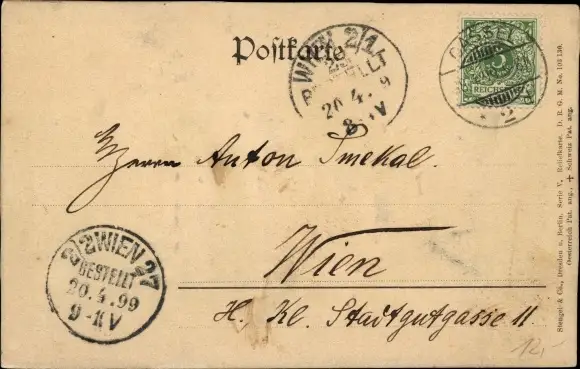 Postkarte
WIEN 2/1
BESTELLT
20.4.9
8 V
CASSEL
2
5
REICHSPOST
Herrn Anton Smekal.
Wien
II, Kl. Stadtgutgasse 11
2/2 WIEN 27
BESTELLT
20.4.99
9-11V
Stengel & Co., Dresden u. Berlin. Serie V. Reliefkarte. D. R. G. M. No. 103 130.
Oesterreich Pat. ang., + Schweiz Pat. ang.
12,-